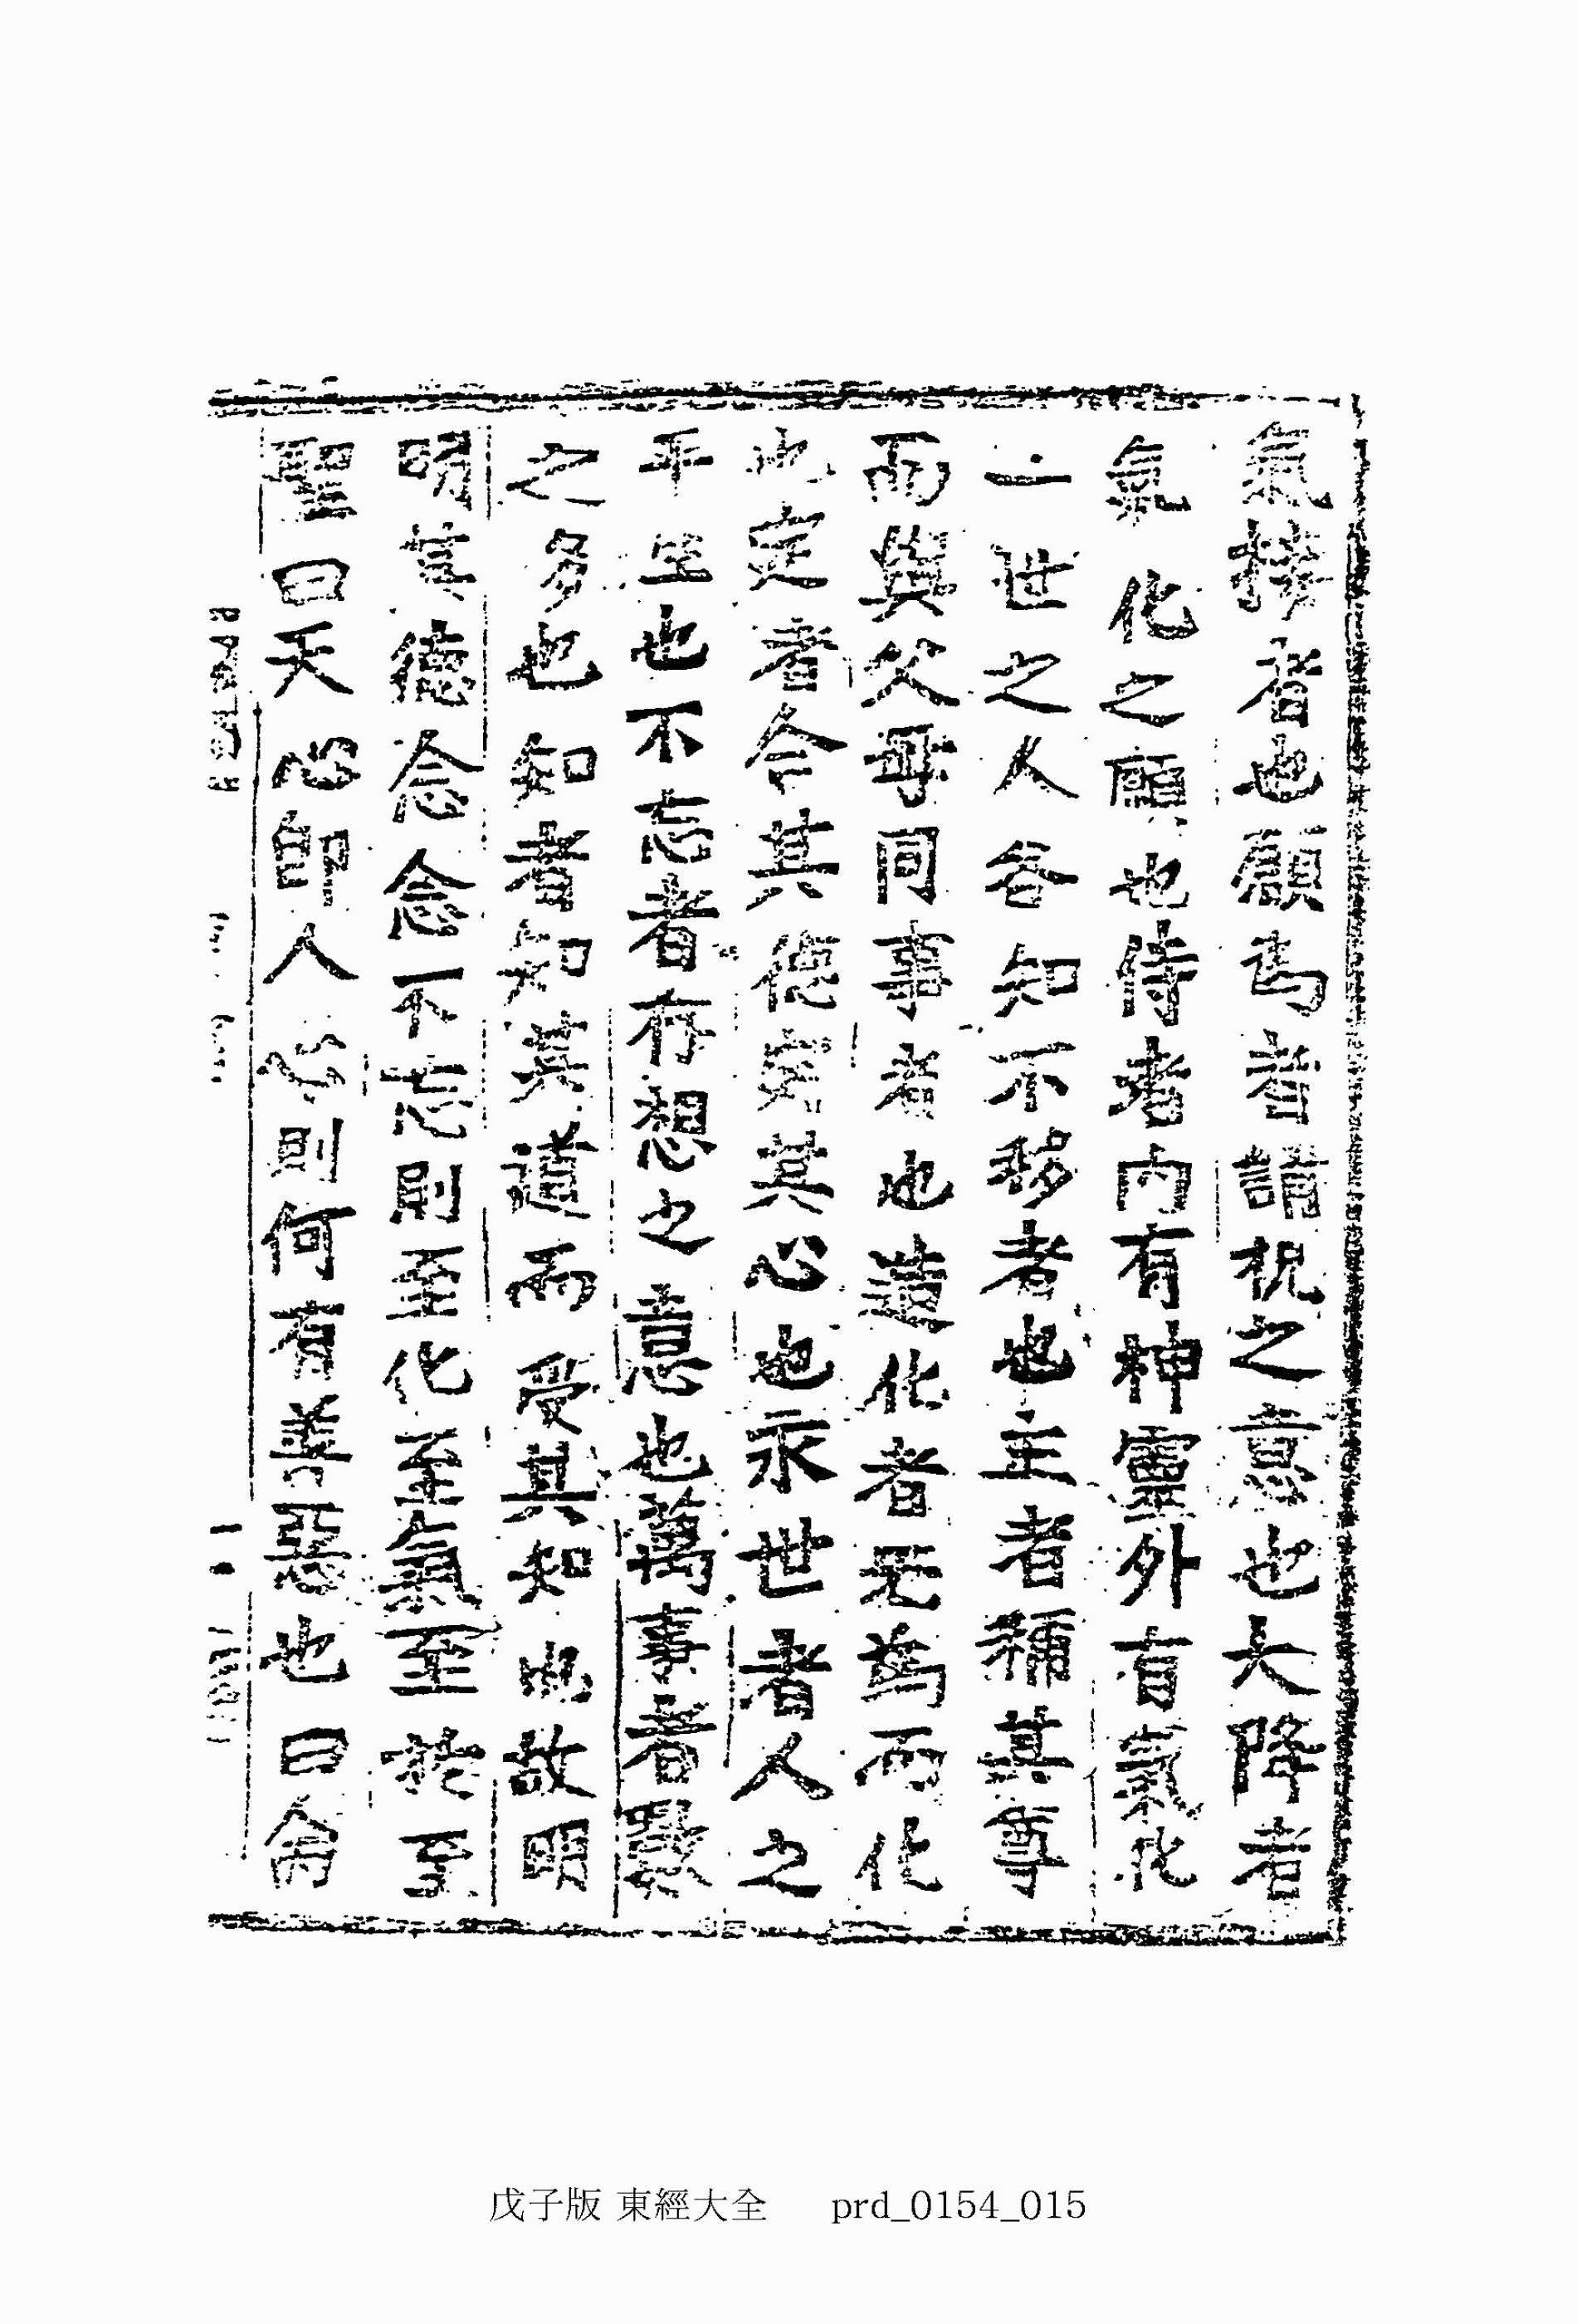 氣接者也願爲者請祝之意也大降者
氣化之願也侍者內有神靈外有氣化
一世之人各知不移者也主者稱其尊
而與父母同事者也造化者无爲而化
也定者合其德定其心也永世者人之
平生也不忘者存想之意也萬事者數
之多也知者知其道而受其知也故明
明其德念念不忘則至化至氣至於至
聖曰天心卽人心則何有善惡也曰命
戊子版 東經大全 prd_0154_015